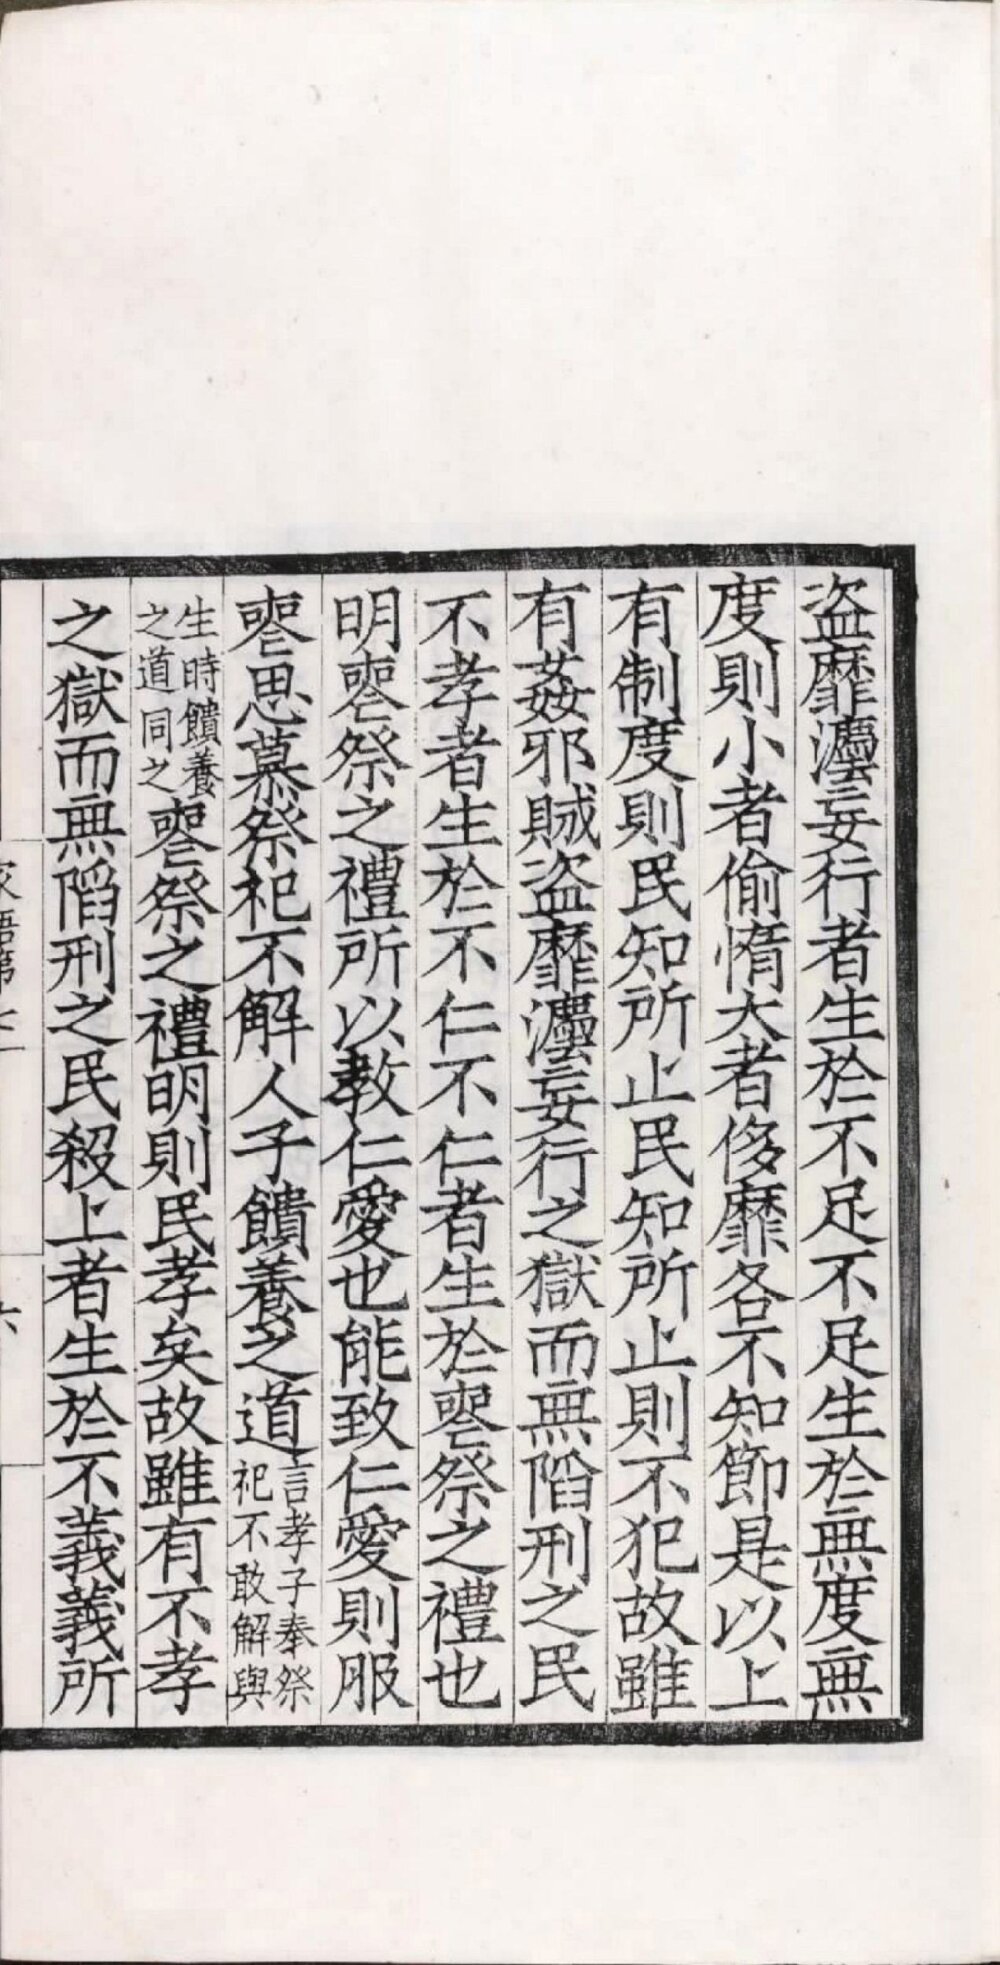 盜靡灋妄行者生於不足不足生於無度無
度則小者偷惰大者侈靡各不知節是以上
有制度則民知所止民知所止則不犯故雖
有姦邪賊盜靡灋妄行之獄而無陷刑之民
不孝者生於不仁不仁者生於喪祭之禮也
明喪祭之禮所以教仁愛也能致仁愛則服
喪思慕祭祀不解人子饋養之道言孝子奉祭祀不敢解與
生時饋養之道同之喪祭之禮明則民孝矣故雖有不孝
之獄而無陷刑之民殺上者生於不義義所
家語第七
六